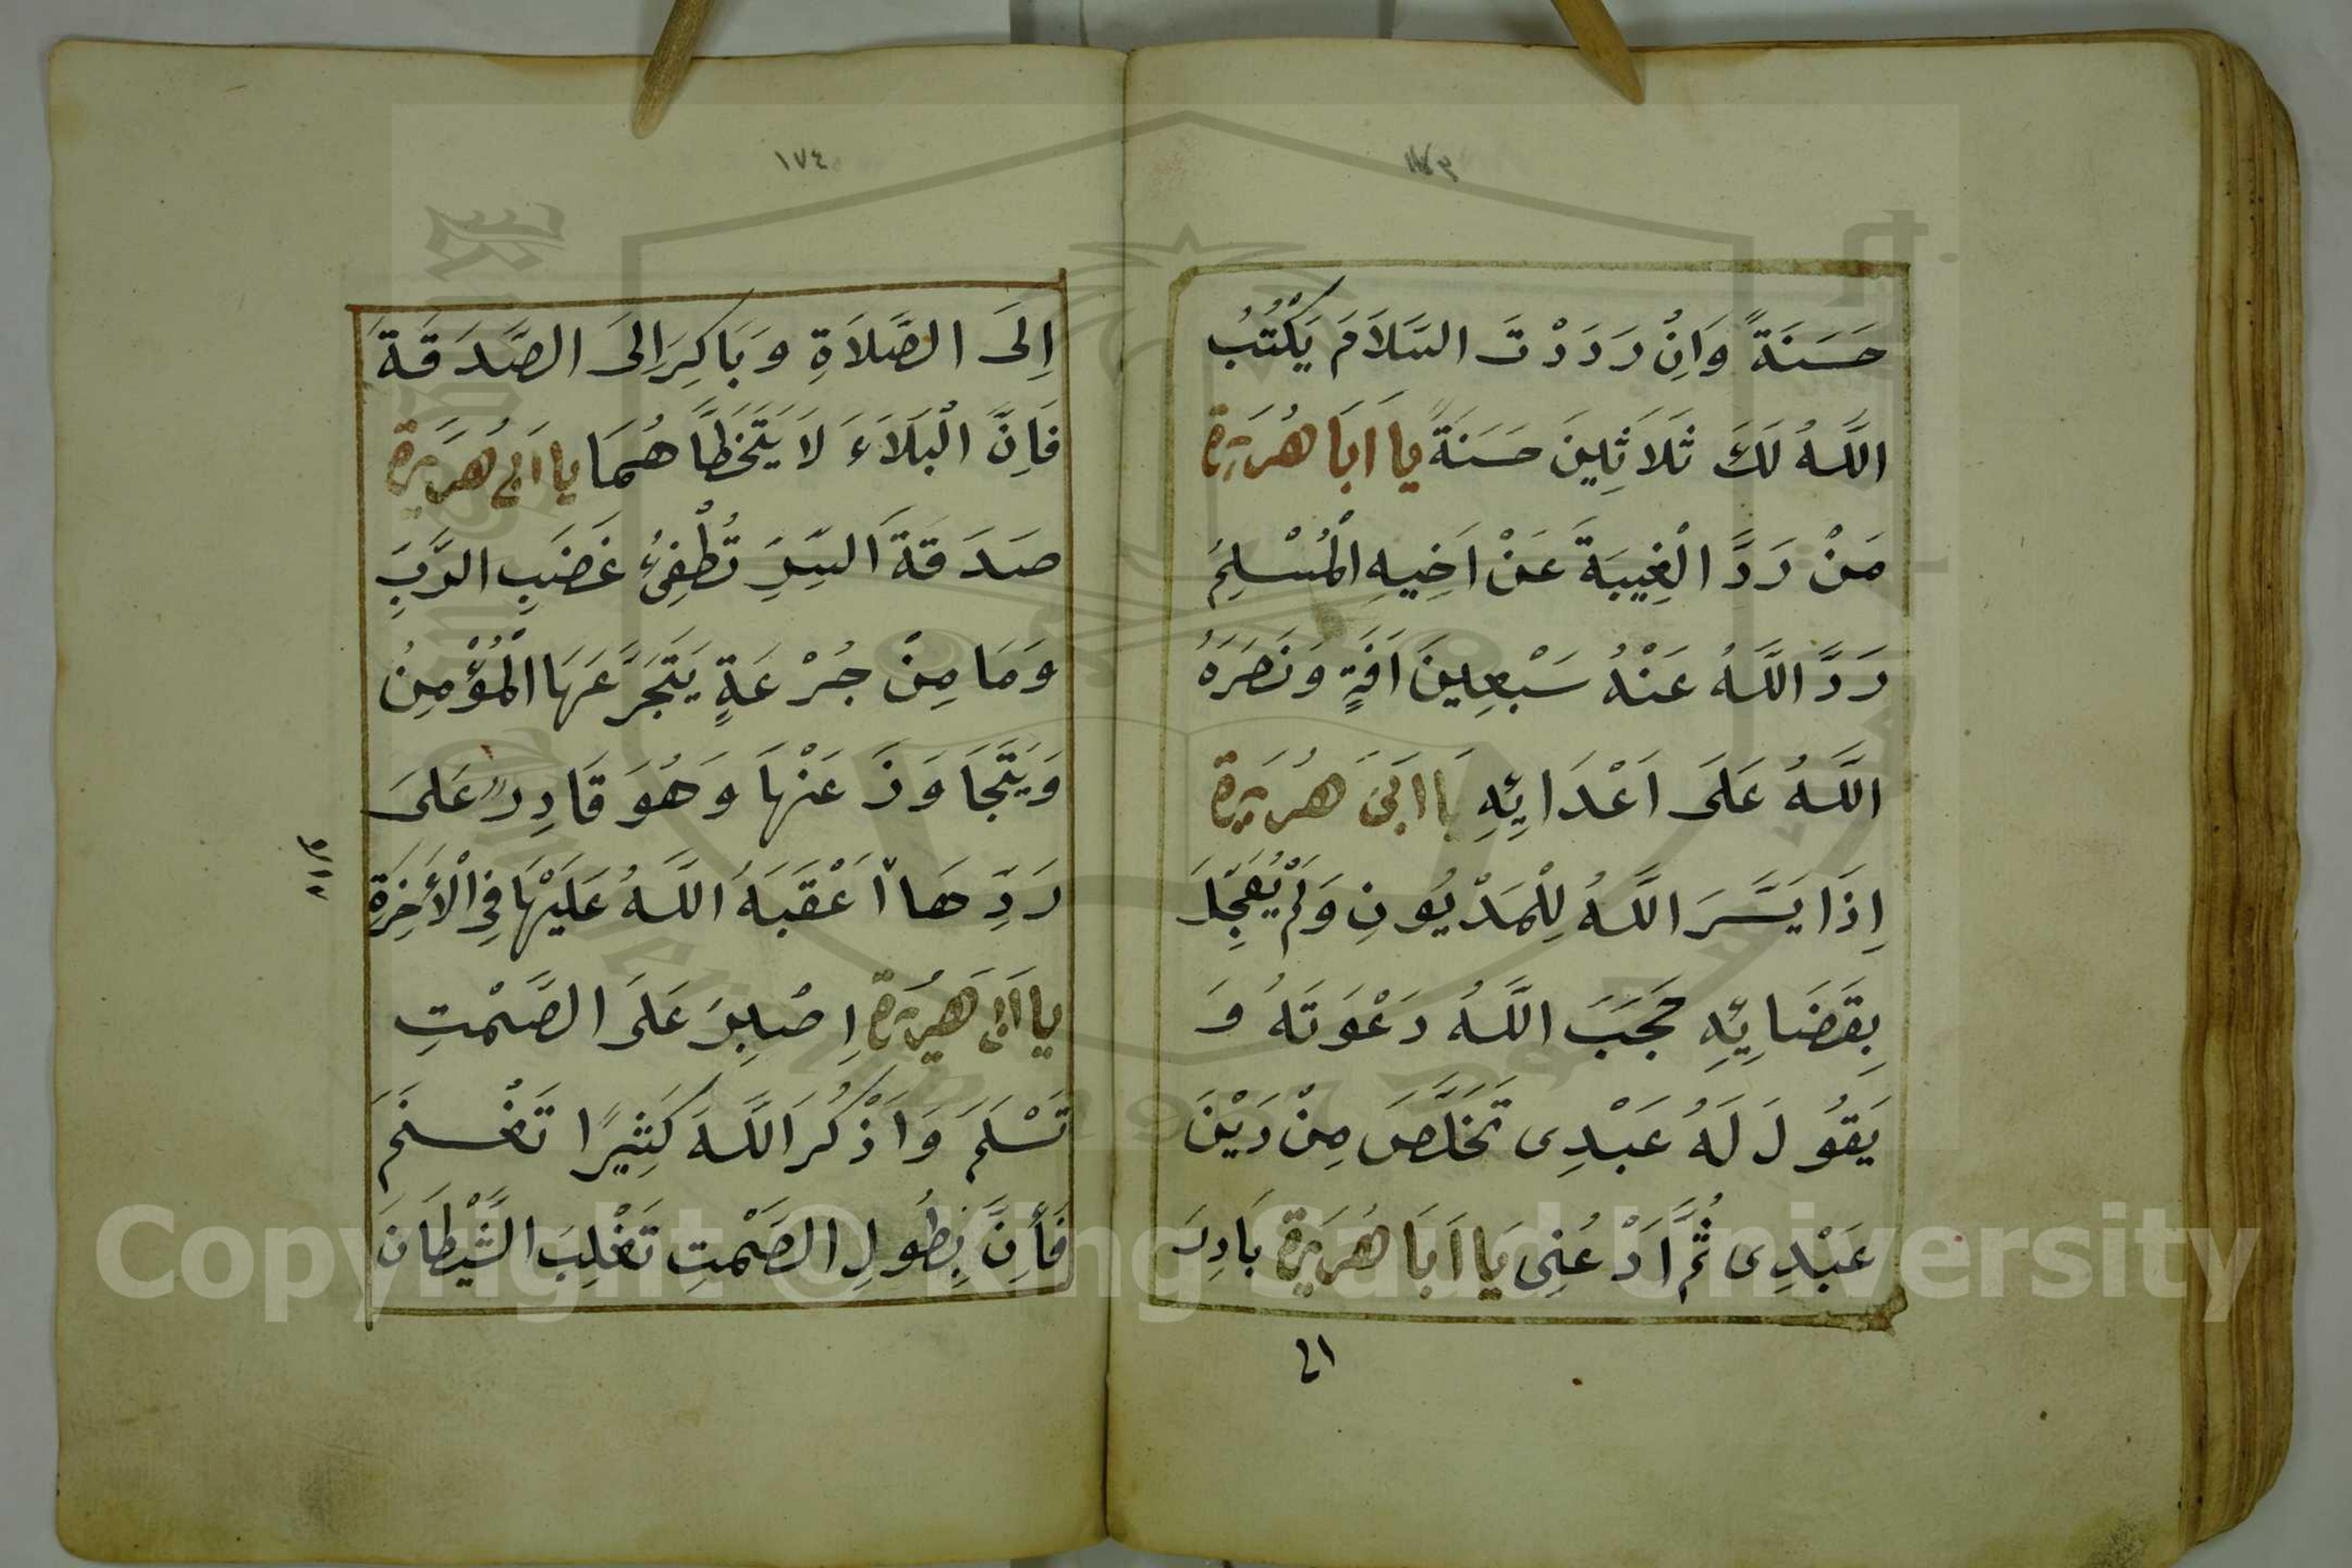 ١٧٣
حَسَنَةً وَاِنْ رَدَدْتَ السَّلَامَ يَكْتُبُ
اللَّهُ لَكَ ثَلَاثِينَ حَسَنَةً يا اَبَا هُرَيْرَة
مَنْ رَدَّ الْغِيبَةَ عَنْ اَخِيهِ الْمُسْلِمُ
رَدَّ اللَّهُ عَنْهُ سَبْعِينَ اَفَةٍ وَنَصَرَهُ
اللَّهُ عَلَى اَعْدَائِهِ يَا اَبَى هُرَيْرَة
اِذَا يَسَّرَ اللَّهُ لِلْمَدْيُونِ وَلَمْ يُعَجِّلَ
بِقَضَائِهِ حَجَبَ اللَّهُ دَعْوَتَهُ وَ
يَقُولَ لَهُ عَبْدِى تَخَلَّصَ مِنْ دَيْنَ
عَبْدِى ثُمَّ اَدْعُنِى يَا اَبَا هُرَيْرَة بَادِرَ
١٧٤
اِلَى الصَّلَاةِ وَبَاكِرَ اِلَى الصَّدَقَةَ
فَاِنَّ الْبَلَاءَ لَا يَتَخَطَّاهُمَا يا ابى هُرَيْرَة
صَدَقَةَ السِّرِّ تُطْفِئُ غَضَبِ الرَّبِّ
وَمَا مِنْ جُرْعَةٍ يَتَجَرَّعَهَا الْمُؤْمِنُ
وَيَتَجَاوَزَ عَنْهَا وَهُوَ قَادِرٌ عَلَى
رَدِّهَا اَعْقَبَهُ اللَّهُ عَلَيْهَا فِى الْأَخِرَةِ
يا اَبَى هُرَيْرَة اِصْبِرَ عَلَى الصَّمْتِ
تَسْلَمَ وَاذْكُرَ اللَّهَ كَثِيرًا تَغْنَمَ
فَأِنَّ بِطُولِ الصَّمْتِ تَغْلِبَ الشَّيْطَانَ
Copyright © King Saud University